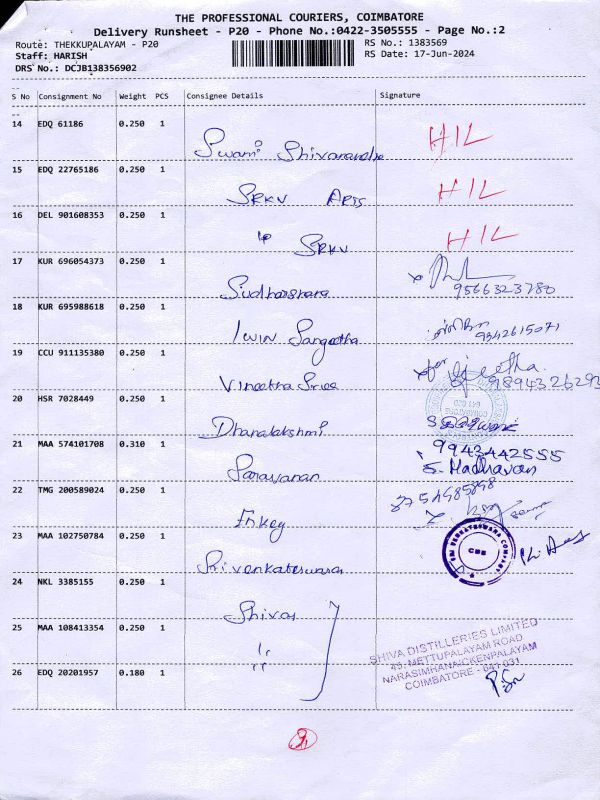 THE PROFESSIONAL COURIERS, COIMBATORE
Delivery Runsheet - P20 - Phone No.:0422-3505555 - Page No.:2
Route: THEKKUPALAYAM - P20
RS No.: 1383569
Staff: HARISH
RS Date: 17-Jun-2024
DRS No.: DCJB138356902
S No Consignment No Weight PCS Consignee Details Signature
14 EDQ 61186 0.250 1 Swami HIL
15 EDQ 22765186 0.250 1 SRKV Arts HIL
16 DEL 901608353 0.250 1 " SRKV HIL
17 KUR 696054373 0.250 1
9566323780
18 KUR 695988618 0.250 1 Iwin Sangeetha
9342615071
19 CCU 911135380 0.250 1 Vineetha Sree
9894326293
20 HSR 7028449 0.250 1 Dhanalakshmi
9943442555
21 MAA 574101708 0.310 1 Saravanan S. Madhavan
22 TMG 200589024 0.250 1
23 MAA 102750784 0.250 1 Srivenkateswara
SRI VENKATESWARA COMPANY
CBE
24 NKL 3385155 0.250 1 Shiva
25 MAA 108413354 0.250 1 "
SHIVA DISTILLERIES LIMITED
49, METTUPALAYAM ROAD
NARASIMHANAICKENPALAYAM
COIMBATORE - 641 031
26 EDQ 20201957 0.180 1 "